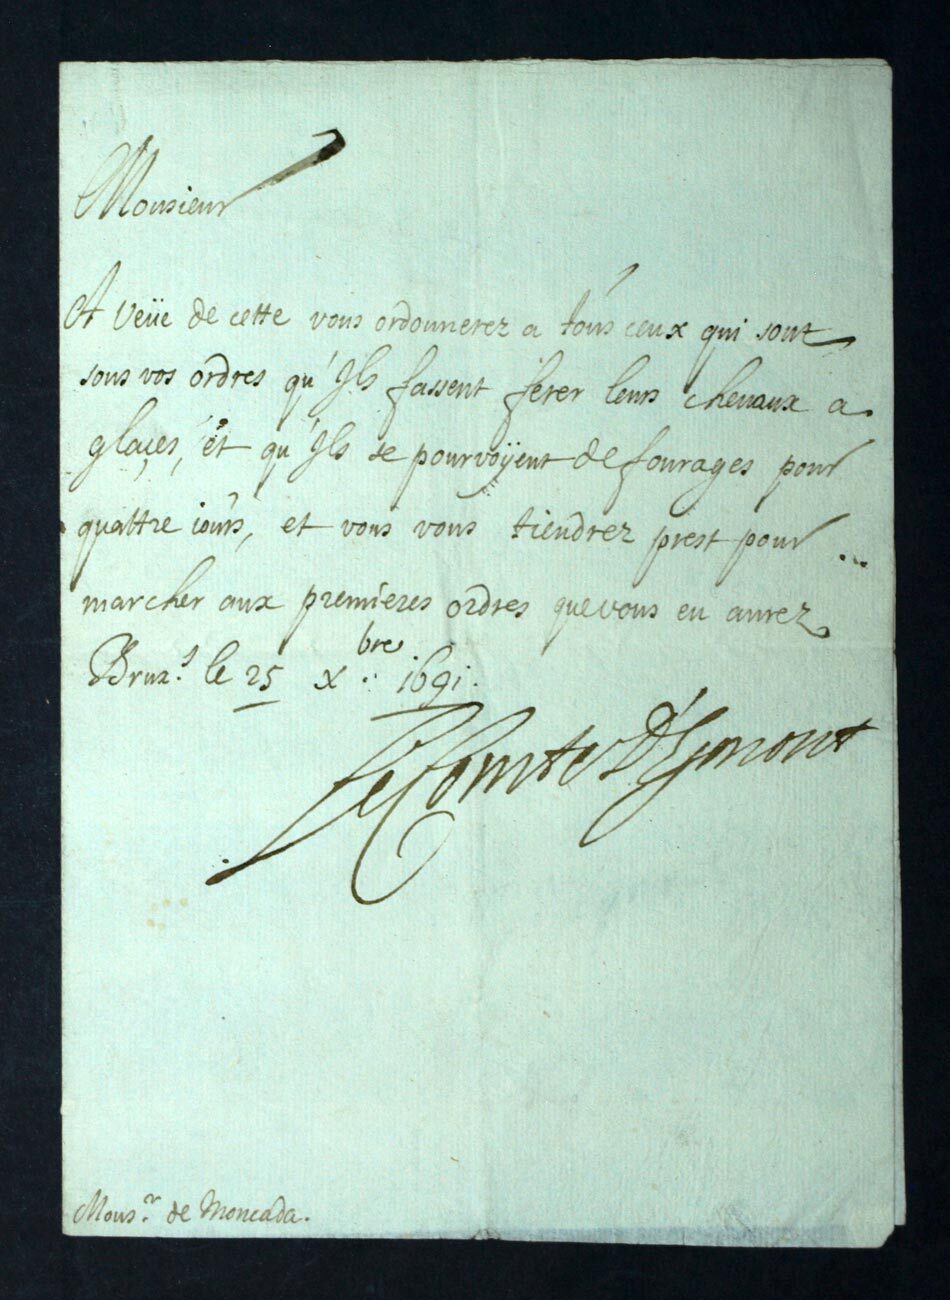 Monsieur
A Veüe de cette vous ordonnerez a tous ceux qui sont
sous vos ordres qu'Ils fassent ferer leurs chevaux a
glaçes, et qu'Ils se pourvoÿent de fourages pour
quattre iours, et vous vous tiendrez prest pour
marcher aux premieres ordres que vous en aurez
Brux.s le 25 X.bre 1691.
Le Comte D'Egmont
Mons.r de Moncada.